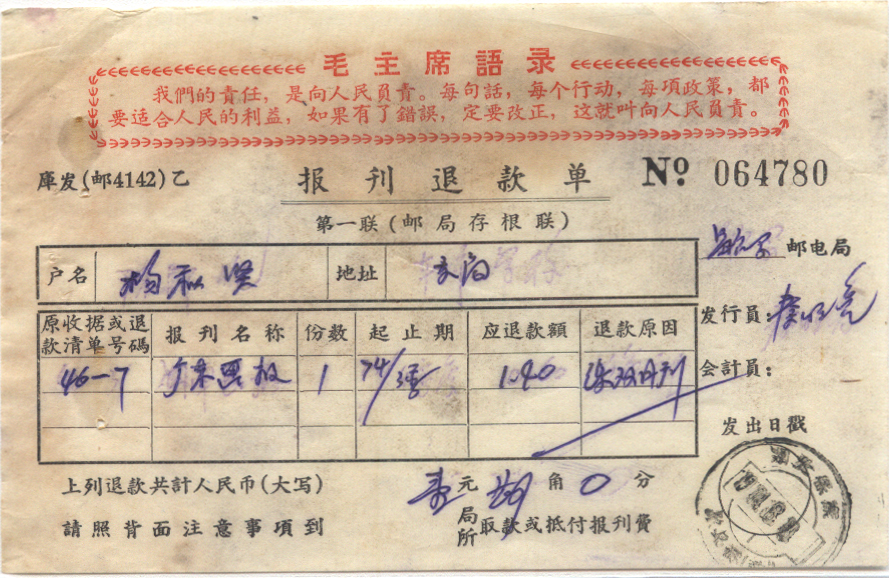 毛主席語录
我們的責任，是向人民負責。每句話，每个行动，每項政策，都
要适合人民的利益，如果有了錯誤，定要改正，这就叫向人民負責。
庫发(邮4142)乙 报刊退款单 Nº 064780
第一联(邮局存根联)
邮电局
户名 地址
发行員：
原收据或退款清单号碼 报刊名称 份数 起止期 应退款額 退款原因
会計員：
46-7 1 74/ 1.40
发出日戳
上列退款共計人民币(大写) 元 角 0 分
請照背面注意事項到 局所 取款或抵付报刊費